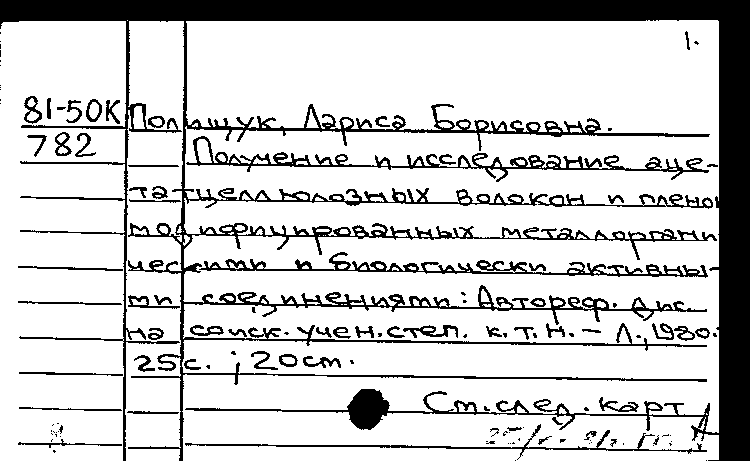 1.
81-50К Полищук, Лариса Борисовна.
782 Получение и исследование аце-
татцеллюлозных волокон и пленок
модифицированных металлоргани
ческими и биологически активны-
ми соединениями: Автореф. дис.
на соиск. учен. степ. к. т. н. – Л., 1980.
25 с. ; 20 см.
См. след. карт